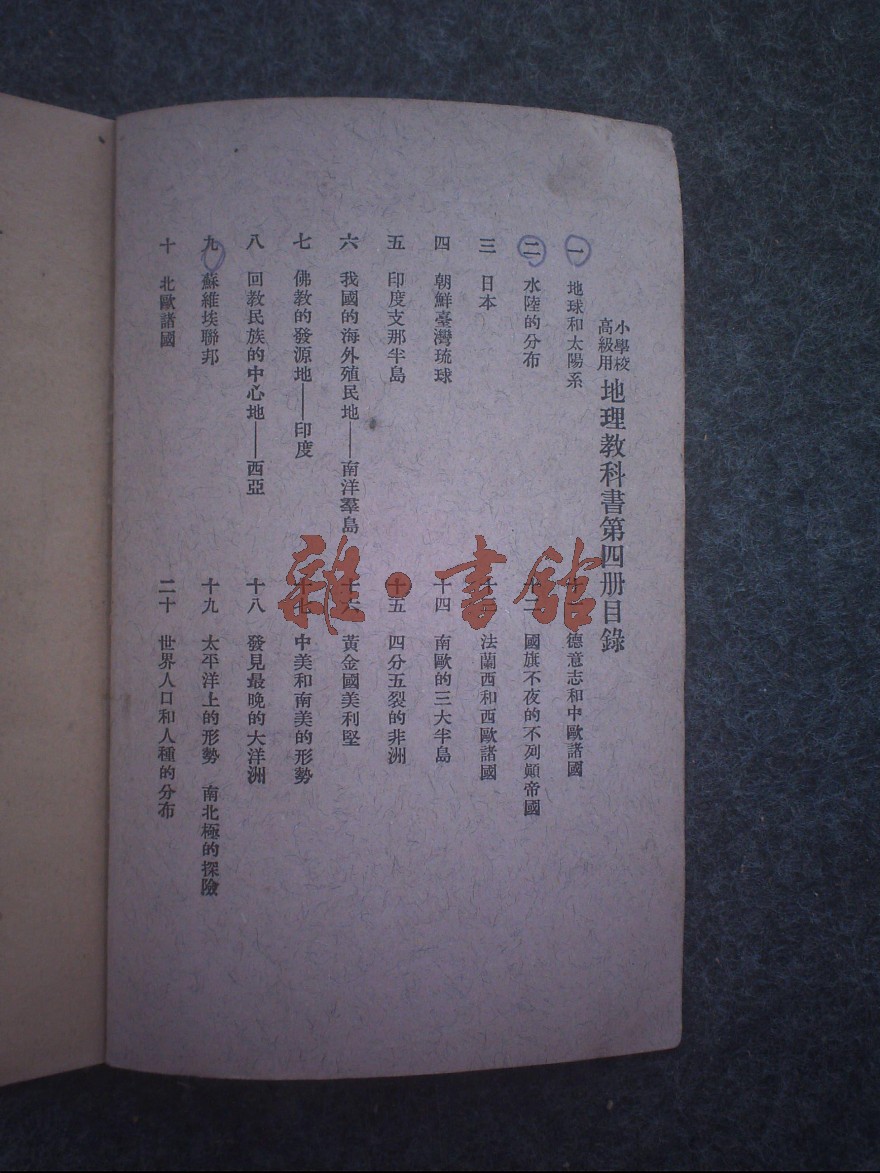 小學校
高級用
地理教科書第四册目錄
一 地球和太陽系
二 水陸的分布
三 日本
四 朝鮮臺灣琉球
五 印度支那半島
六 我國的海外殖民地——南洋羣島
七 佛教的發源地——印度
八 回教民族的中心地——西亞
九 蘇維埃聯邦
十 北歐諸國
十一 德意志和中歐諸國
十二 國旗不夜的不列顛帝國
十三 法蘭西和西歐諸國
十四 南歐的三大半島
十五 四分五裂的非洲
十六 黃金國美利堅
十七 中美和南美的形勢
十八 發見最晚的大洋洲
十九 太平洋上的形勢 南北極的探險
二十 世界人口和人種的分布
雜·書館